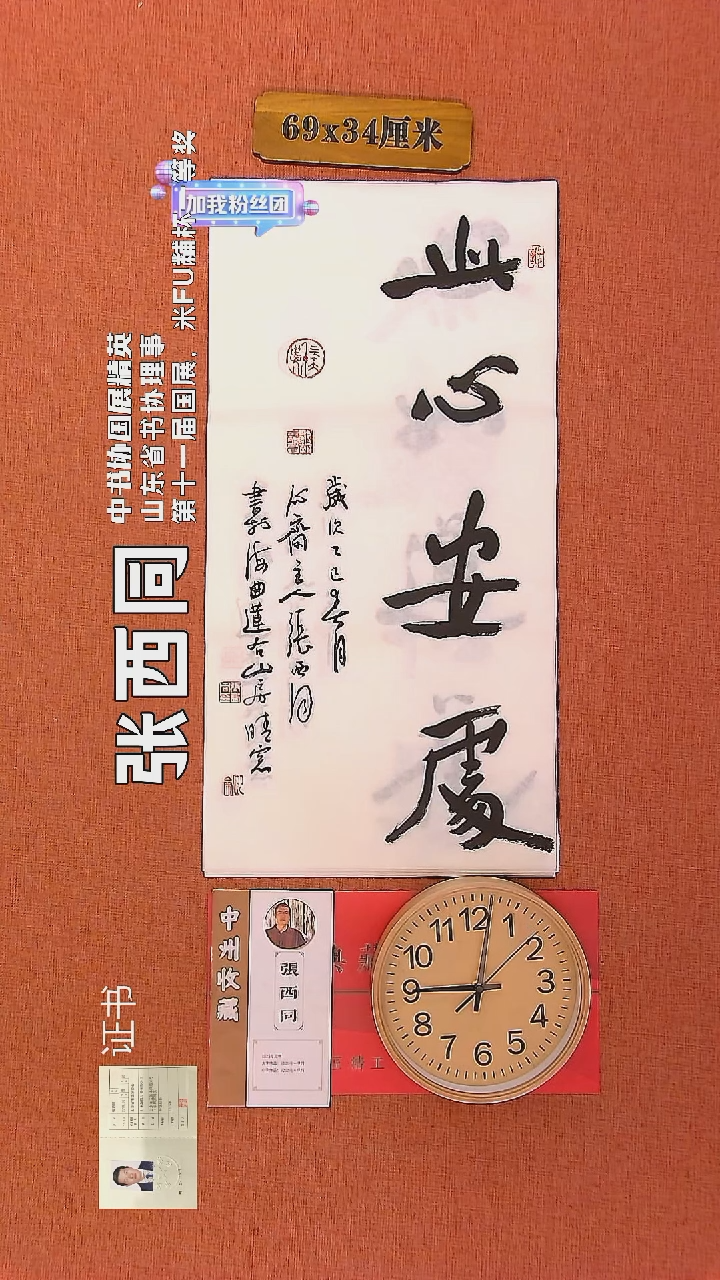 69x34厘米
加我粉丝团
此心安處
歲次乙巳春月
心齋主人張西同
書於海曲蓮石山房晴窗
中书协国展精英
山东省书协理事
第十一届国展、米FU黼杯一等奖
张西同
证书
張西同
12
1
2
3
4
5
6
7
8
9
10
11